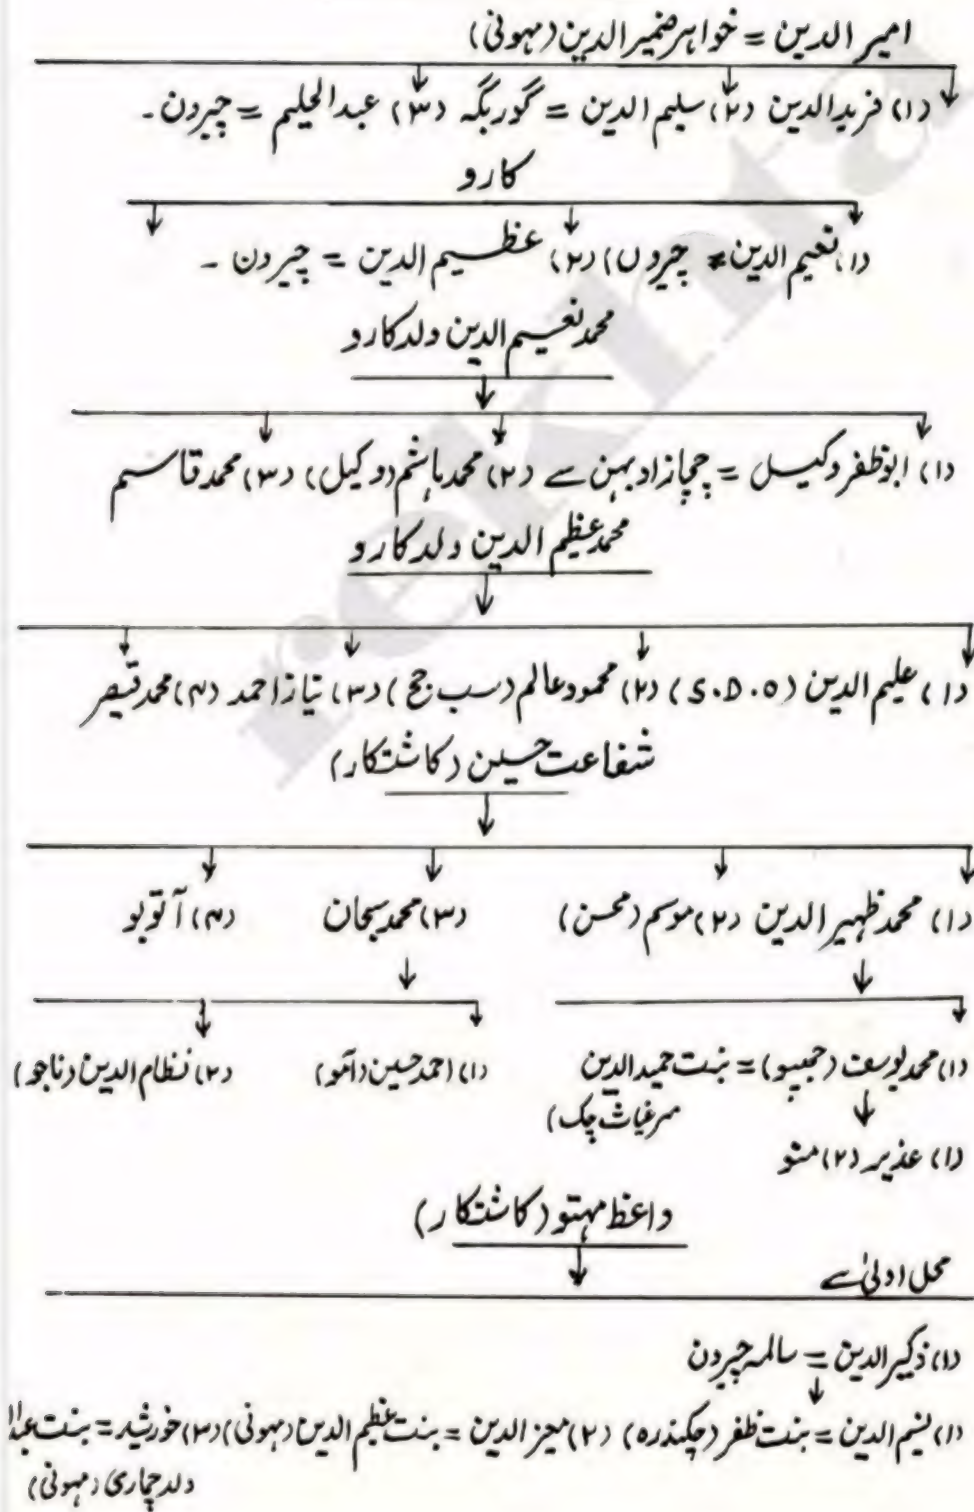 امیر الدین = خواہر ضمیر الدین (مہونی)
(۱) فرید الدین (۲) سلیم الدین = گوریگہ (۳) عبد الحلیم = چیردن ۔
کارو
(۱) نعیم الدین = چیروں) (۲) عظیم الدین = چیردن ۔
محمد نعیم الدین ولد کارو
(۱) ابو ظفر وکیل = چچازاد بہن سے (۲) محمد ہاشم (وکیل) (۳) محمد قاسم
محمد عظیم الدین ولد کارو
(۱) علیم الدین (S.D.O) (۲) محمود عالم (سب جج) (۳) نیاز احمد (۴) محمد قیصر
شفاعت حسین (کاشتکار)
(۱) محمد ظہیر الدین (۲) موسم (محسن) (۳) محمد سبحان (۴) آتوبو
(۱) محمد یوسف (جمیپو) = بنت حمید الدین (۱) احمد حسین (آمو) (۲) نظام الدین (ناجو)
سرغیاث چک)
(۱) عذیر (۲) منو
واعظ مہتو (کاشتکار)
محل اولیٰ سے
(۱) ذکیر الدین = سالمہ چیردن
(۱) نسیم الدین = بنت ظفر (چکندرہ) (۲) معیز الدین = بنت عظیم الدین (مہونی) (۳) خورشید = بنت
ولد چماری (مہونی)
rekhta